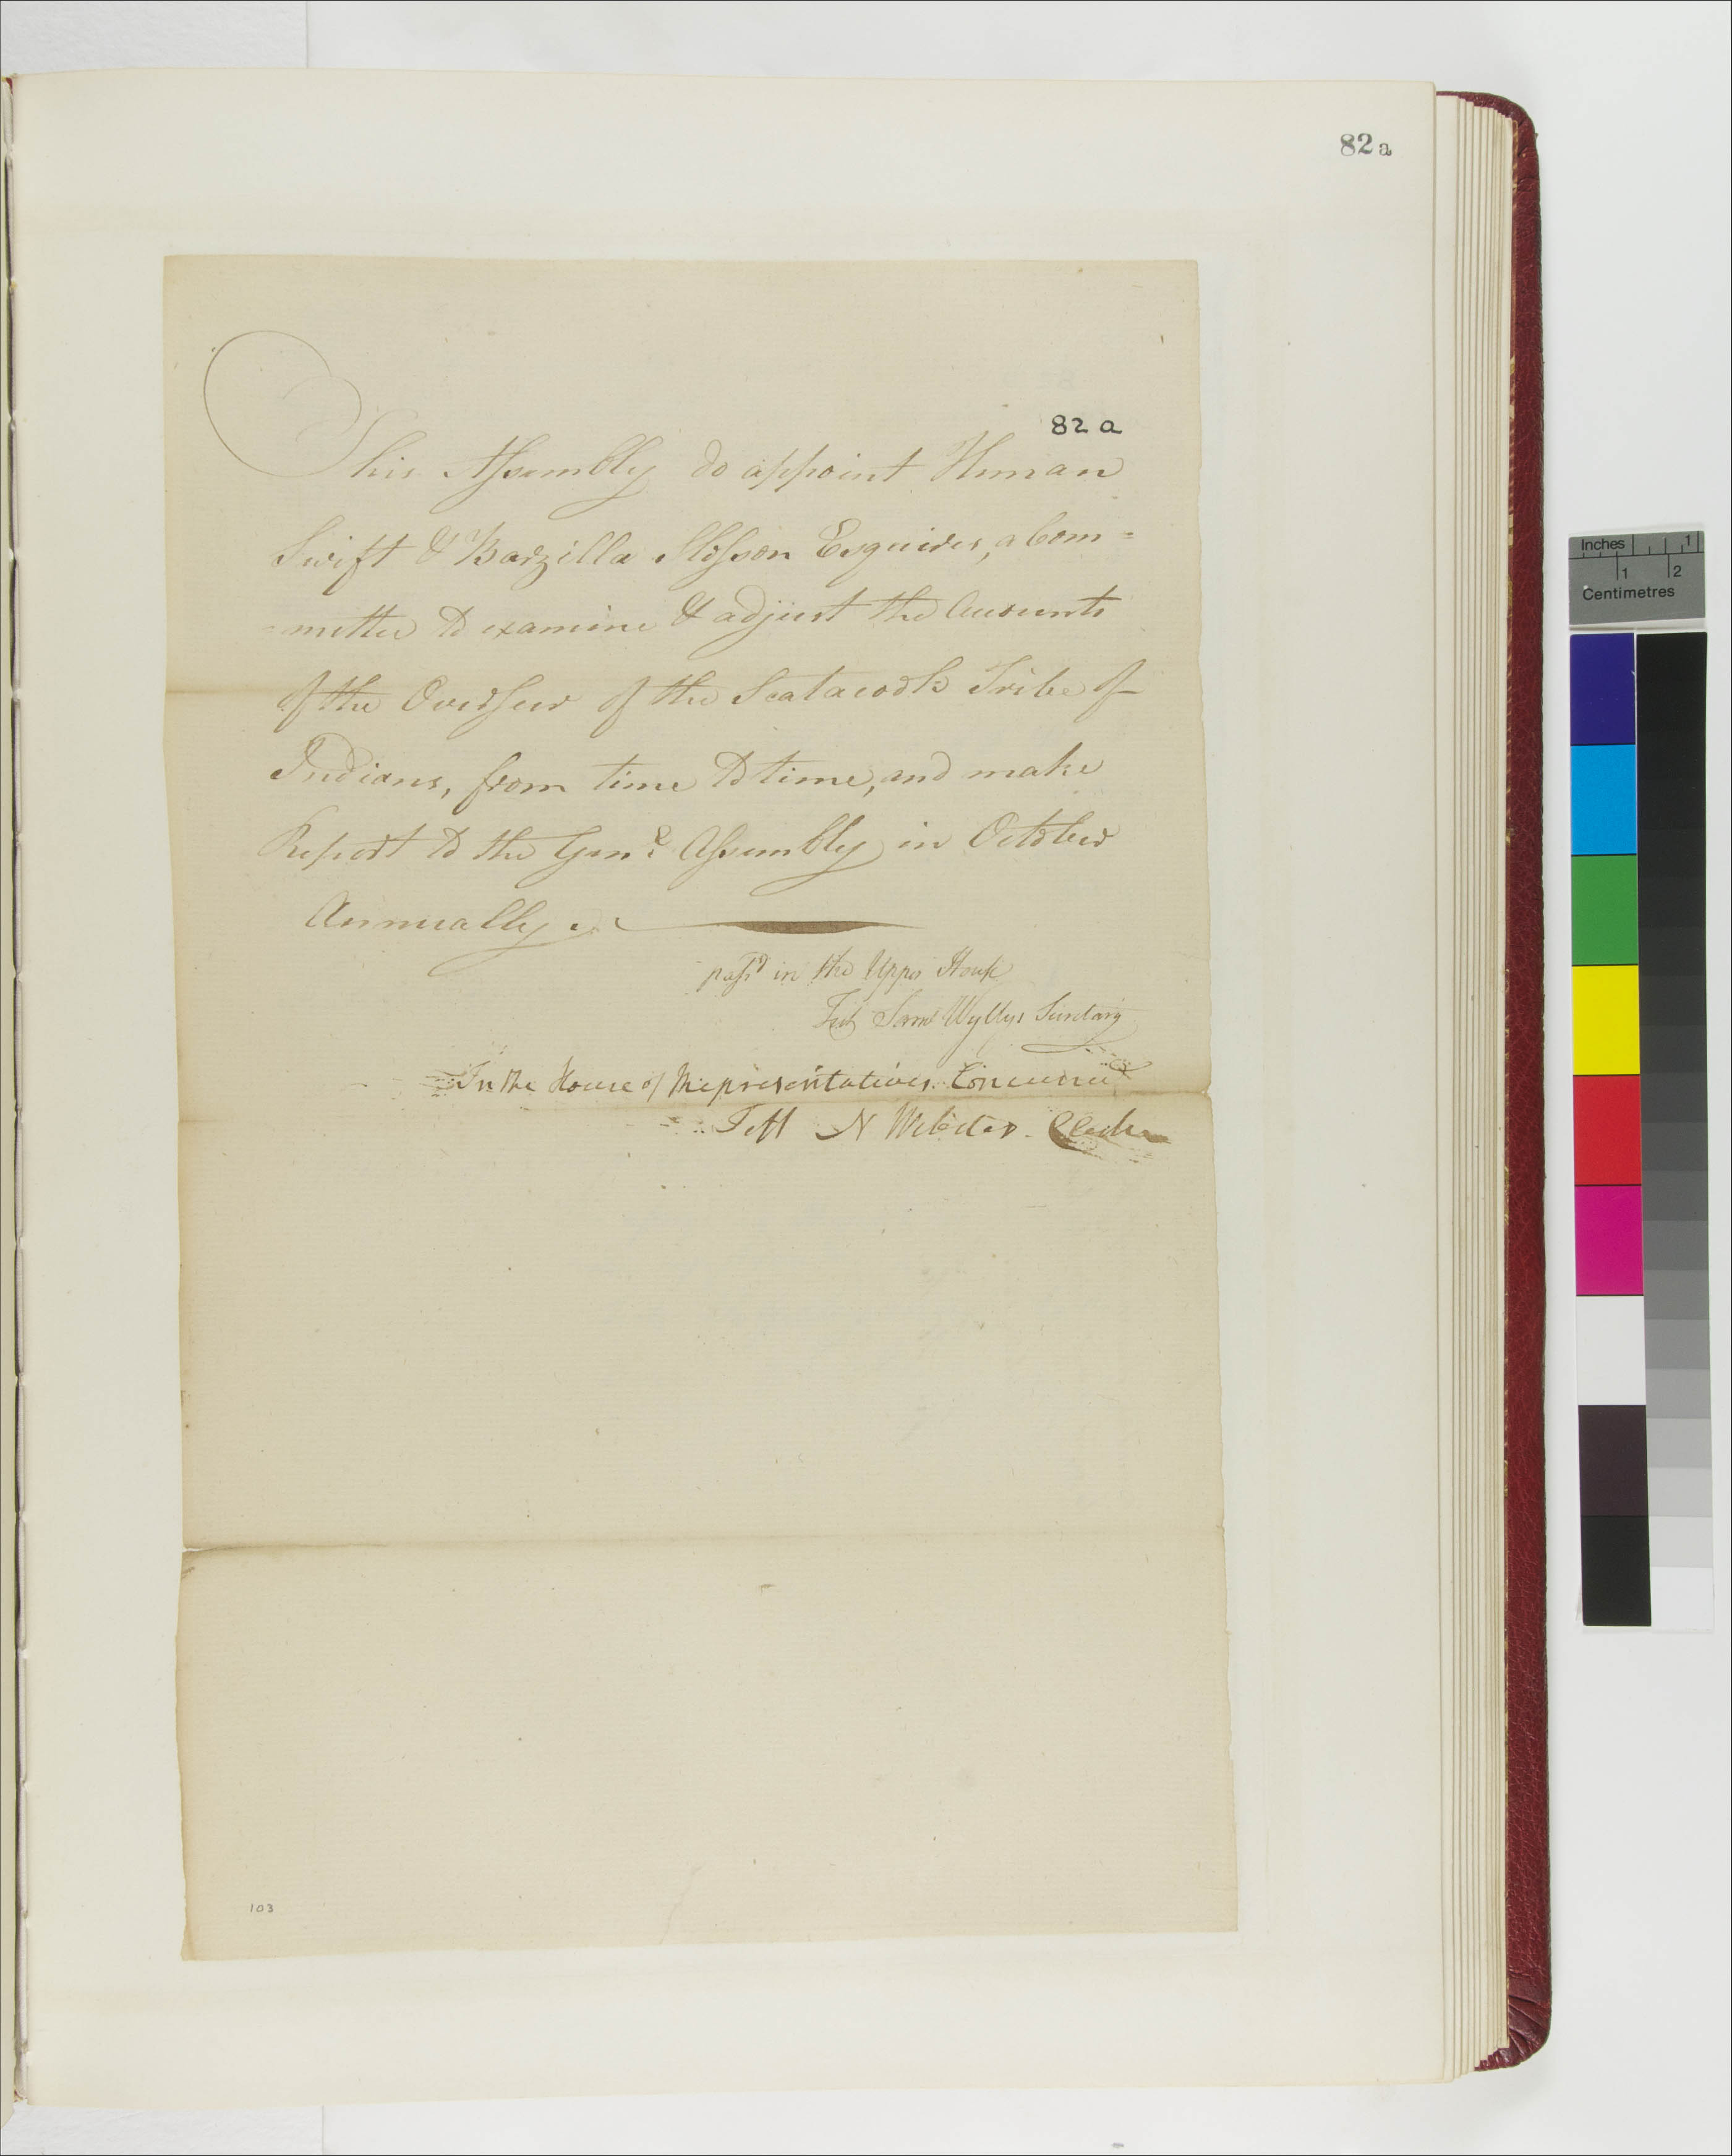 82 a
82 a
This Assembly do appoint Heman
Swift & Barzilla Slosson Esquires, a Com=
=mittee to examine & adjust the Accounts
of the Overseer of the Scatacook Tribe of
Indians, from time to time, and make
Report to the Genl. Assembly in October
Annually.
pass'd in the Upper House
Test Saml Wyllys Secretary
In the House of Representatives Concurred
Test N Webster. Clerk
103
Inches 1
1 2
Centimetres